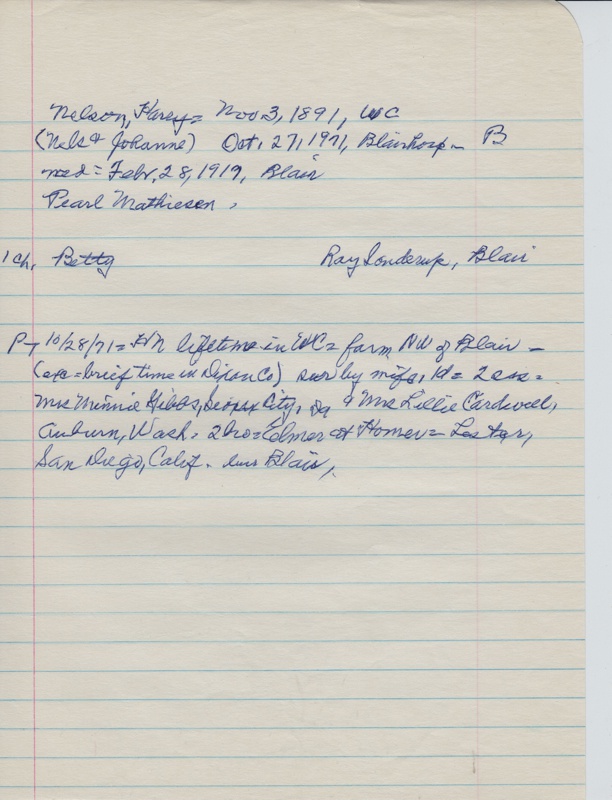 Nelson, Harry = Nov 3, 1891, WC
(Nels & Johanne) Oct. 27, 1971, Blair hosp - B
med = Febr. 28, 1919, Blair
Pearl Mathiesen,
1 ch. Betty Ray Sonderup, Blair
P-T 10/28/71 = HN lifetime in WC = farm NW of Blair -
(exc = brief time in Dixon Co) sur by wife, 1d = 2 sis =
Mrs Minnie Gibbs, Sioux City, Ia & Mrs Lillie Cardwell,
Auburn, Wash. 2 bro = Elmer at Homer = Lester,
San Diego, Calif. Blair,